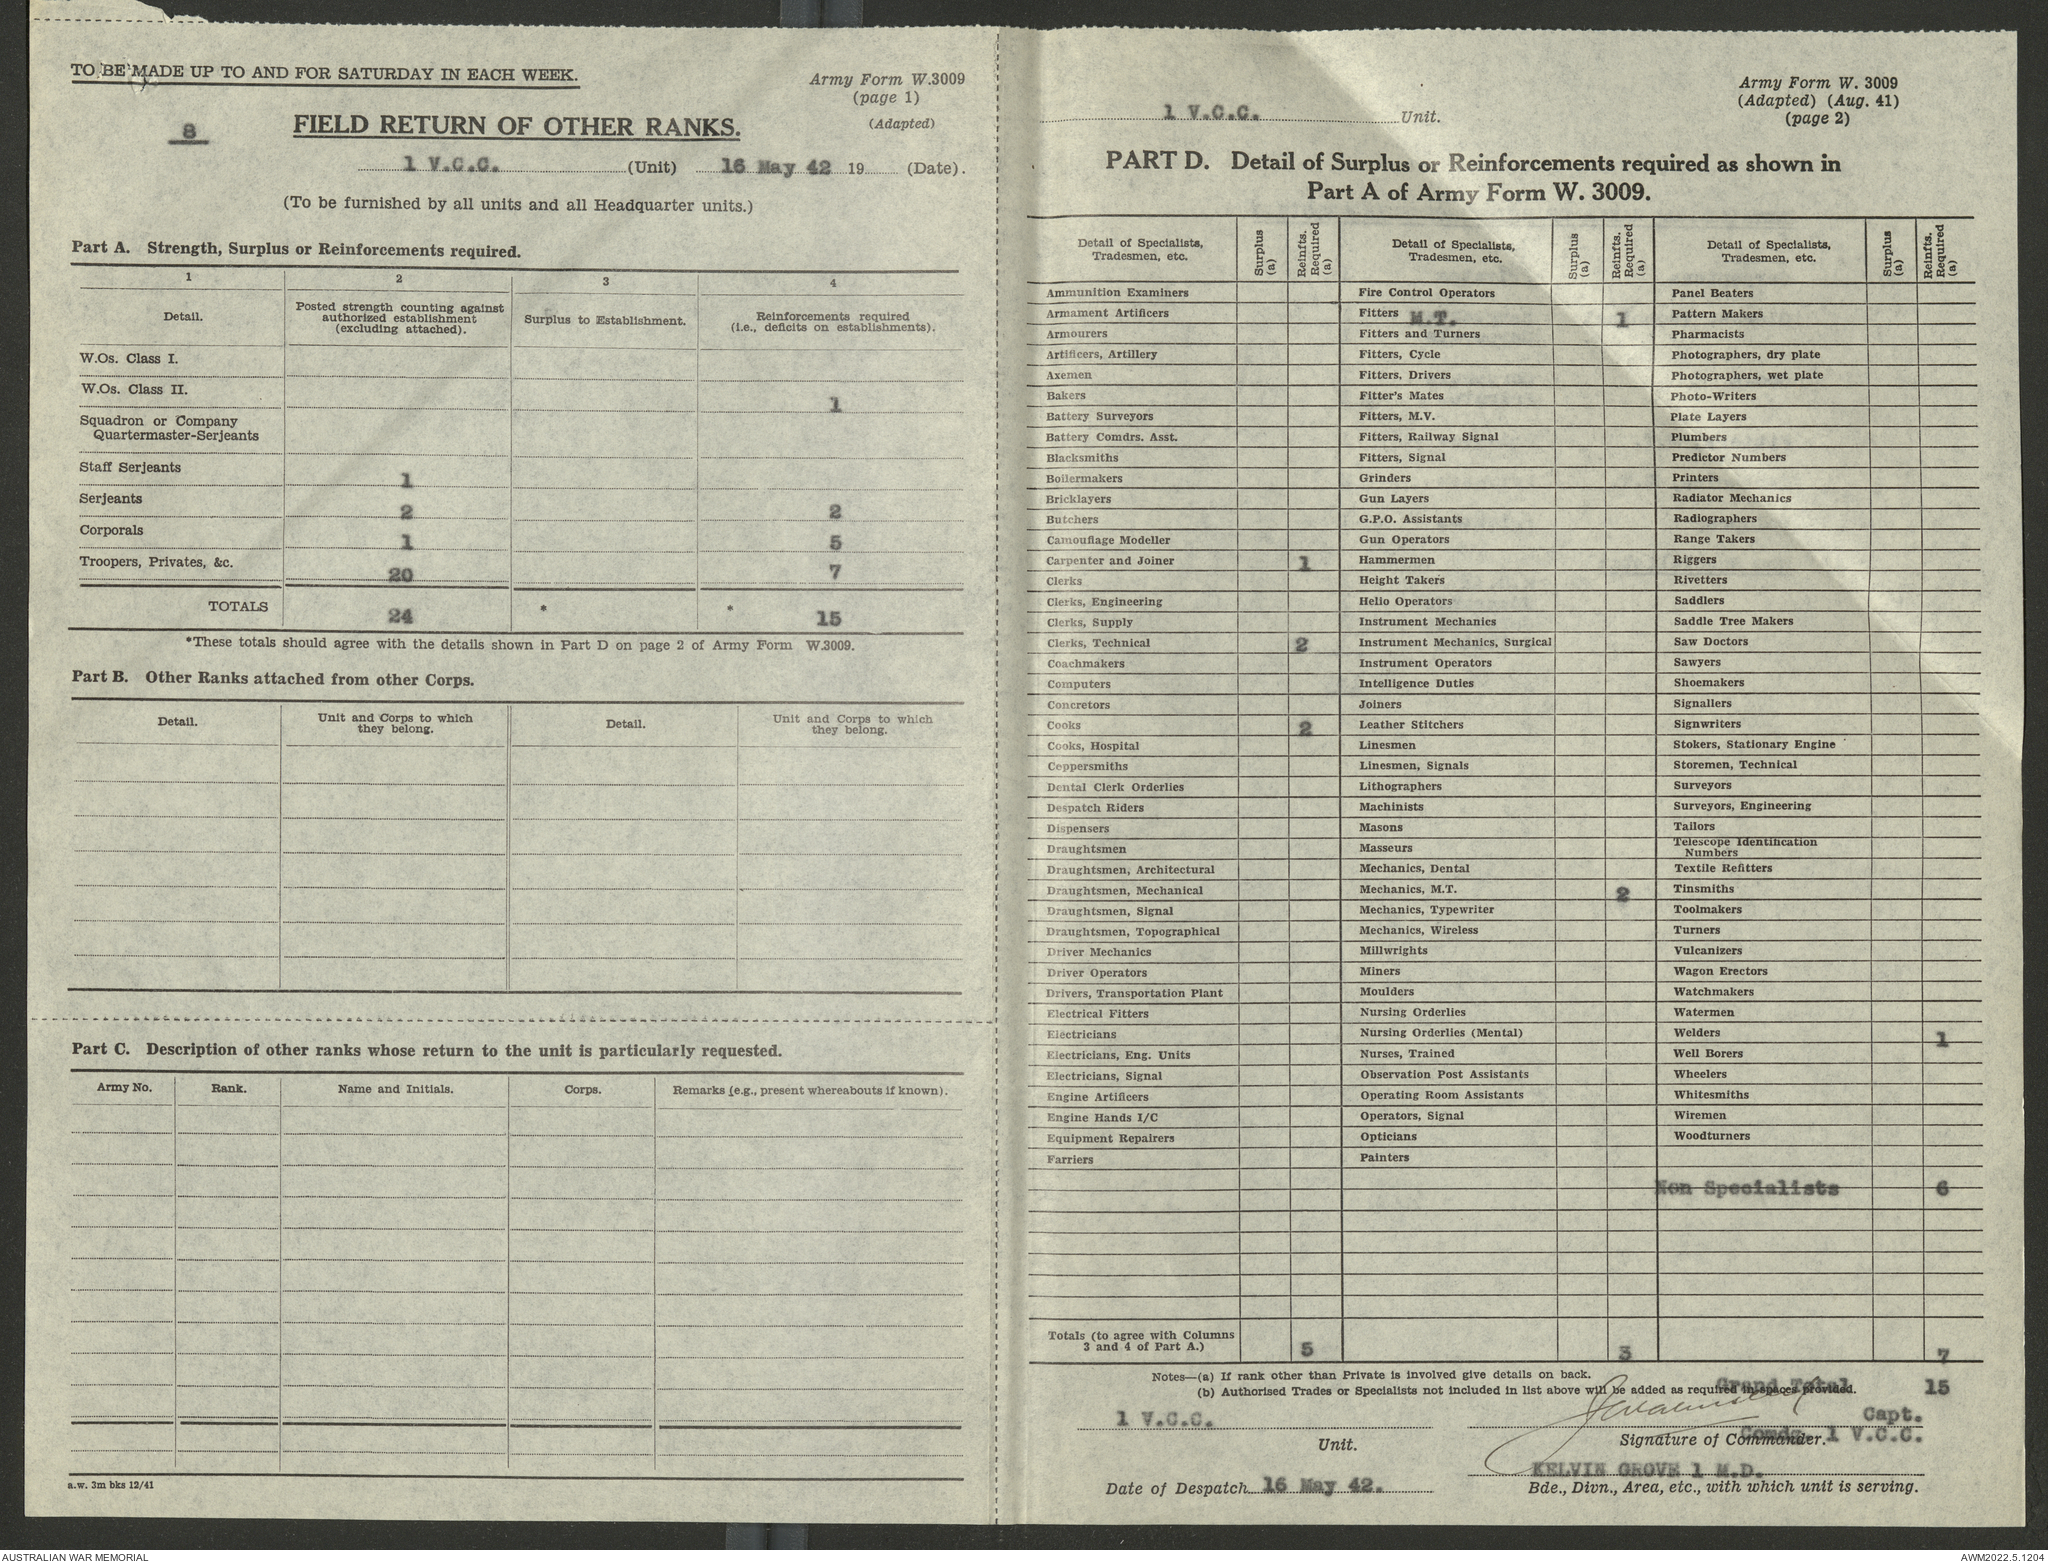 TO BE MADE UP TO AND FOR SATURDAY IN EACH WEEK.
Army Form W.3009
(page 1)
(Adapted)
8
FIELD RETURN OF OTHER RANKS.
1 V.C.C. (Unit) 16 May 42 19 (Date).
(To be furnished by all units and all Headquarter units.)
Part A. Strength, Surplus or Reinforcements required.
1 2 3 4
Detail. Posted strength counting against authorized establishment (excluding attached). Surplus to Establishment. Reinforcements required (i.e., deficits on establishments).
W.Os. Class I.
W.Os. Class II. 1
Squadron or Company
Quartermaster-Serjeants
Staff Serjeants 1
Serjeants 2 2
Corporals 1 5
Troopers, Privates, &c. 20 7
TOTALS 24 * * 15
*These totals should agree with the details shown in Part D on page 2 of Army Form W.3009.
Part B. Other Ranks attached from other Corps.
Detail. Unit and Corps to which they belong. Detail. Unit and Corps to which they belong.
Part C. Description of other ranks whose return to the unit is particularly requested.
Army No. Rank. Name and Initials. Corps. Remarks (e.g., present whereabouts if known).
a.w. 3m bks 12/41
Army Form W. 3009
(Adapted) (Aug. 41)
(page 2)
1 V.C.C. Unit.
PART D. Detail of Surplus or Reinforcements required as shown in
Part A of Army Form W. 3009.
Detail of Specialists, Tradesmen, etc. Surplus (a) Reinfts. Required (a) Detail of Specialists, Tradesmen, etc. Surplus (a) Reinfts. Required (a) Detail of Specialists, Tradesmen, etc. Surplus (a) Reinfts. Required (a)
Ammunition Examiners Fire Control Operators Panel Beaters
Armament Artificers Fitters M.T. 1 Pattern Makers
Armourers Fitters and Turners Pharmacists
Artificers, Artillery Fitters, Cycle Photographers, dry plate
Axemen Fitters, Drivers Photographers, wet plate
Bakers Fitter's Mates Photo-Writers
Battery Surveyors Fitters, M.V. Plate Layers
Battery Comdrs. Asst. Fitters, Railway Signal Plumbers
Blacksmiths Fitters, Signal Predictor Numbers
Boilermakers Grinders Printers
Bricklayers Gun Layers Radiator Mechanics
Butchers G.P.O. Assistants Radiographers
Camouflage Modeller Gun Operators Range Takers
Carpenter and Joiner 1 Hammermen Riggers
Clerks Height Takers Rivetters
Clerks, Engineering Helio Operators Saddlers
Clerks, Supply Instrument Mechanics Saddle Tree Makers
Clerks, Technical 2 Instrument Mechanics, Surgical Saw Doctors
Coachmakers Instrument Operators Sawyers
Computers Intelligence Duties Shoemakers
Concretors Joiners Signallers
Cooks 2 Leather Stitchers Signwriters
Cooks, Hospital Linesmen Stokers, Stationary Engine
Coppersmiths Linesmen, Signals Storemen, Technical
Dental Clerk Orderlies Lithographers Surveyors
Despatch Riders Machinists Surveyors, Engineering
Dispensers Masons Tailors
Draughtsmen Masseurs Telescope Identification Numbers
Draughtsmen, Architectural Mechanics, Dental Textile Refitters
Draughtsmen, Mechanical Mechanics, M.T. 2 Tinsmiths
Draughtsmen, Signal Mechanics, Typewriter Toolmakers
Draughtsmen, Topographical Mechanics, Wireless Turners
Driver Mechanics Millwrights Vulcanizers
Driver Operators Miners Wagon Erectors
Drivers, Transportation Plant Moulders Watchmakers
Electrical Fitters Nursing Orderlies Watermen
Electricians Nursing Orderlies (Mental) Welders 1
Electricians, Eng. Units Nurses, Trained Well Borers
Electricians, Signal Observation Post Assistants Wheelers
Engine Artificers Operating Room Assistants Whitesmiths
Engine Hands I/C Operators, Signal Wiremen
Equipment Repairers Opticians Woodturners
Farriers Painters
Non Specialists 6
Totals (to agree with Columns 3 and 4 of Part A.) 5 3 7
Notes—(a) If rank other than Private is involved give details on back.
(b) Authorised Trades or Specialists not included in list above will be added as required in spaces provided.
Grand Total 15
1 V.C.C. Capt.
Unit. Signature of Commander. Comdg. 1 V.C.C.
KELVIN GROVE 1 M.D.
Date of Despatch 16 May 42. Bde., Divn., Area, etc., with which unit is serving.
AUSTRALIAN WAR MEMORIAL AWM2022.5.1204